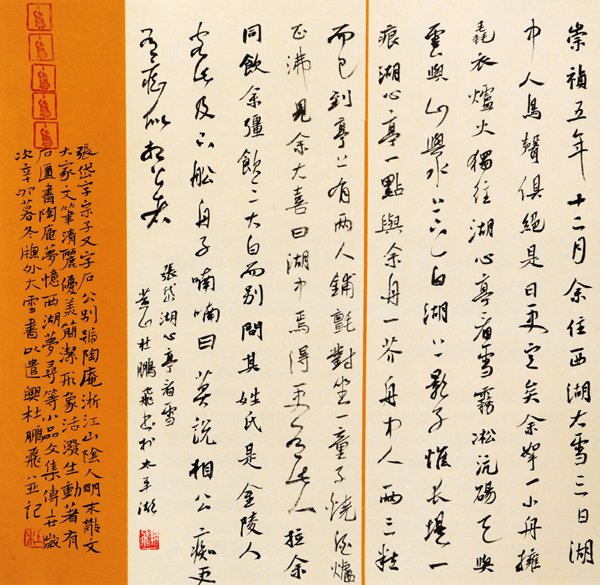 崇禎五年十二月余住西湖大雪三日湖
中人鳥聲俱絕是日更定矣余拏一小舟擁
毳衣爐火獨往湖心亭看雪霧凇沆碭天與
雲與山與水上下一白湖上影子惟長堤一
痕湖心亭一點與余舟一芥舟中人兩三粒
而已到亭上有兩人鋪氈對坐一童子燒酒爐
正沸見余大喜曰湖中焉得更有此人拉余
同飲余彊飲三大白而別問其姓氏是金陵人
客此及下船舟子喃喃曰莫說相公癡更
有癡似相公者
張岱湖心亭看雪
黃山杜鵬飛書於太平湖
張岱字宗子又字石公別號陶庵浙江山陰人明末散文
大家文筆清麗優美簡潔形象活潑生動著有
石匱書陶庵夢憶西湖夢尋等小品文集傳世歲
次辛卯暮冬牖外大雪書以遣興杜鵬飛並記